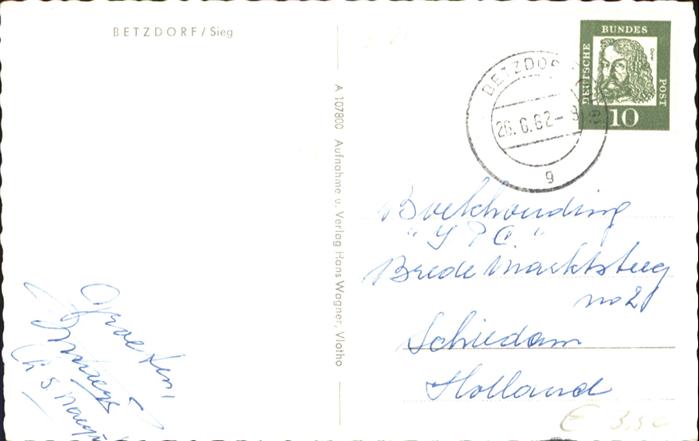 BETZDORF/Sieg
A 107800 Aufnahme u. Verlag Hans Wagner, Vlotho
DEUTSCHE
BUNDES
POST
10
BETZDOR
26.6.62-8
g
Boekhouding
"
Brede Marktsteeg
no 2
Schiedam
Holland
Groeten,
€ 3,50